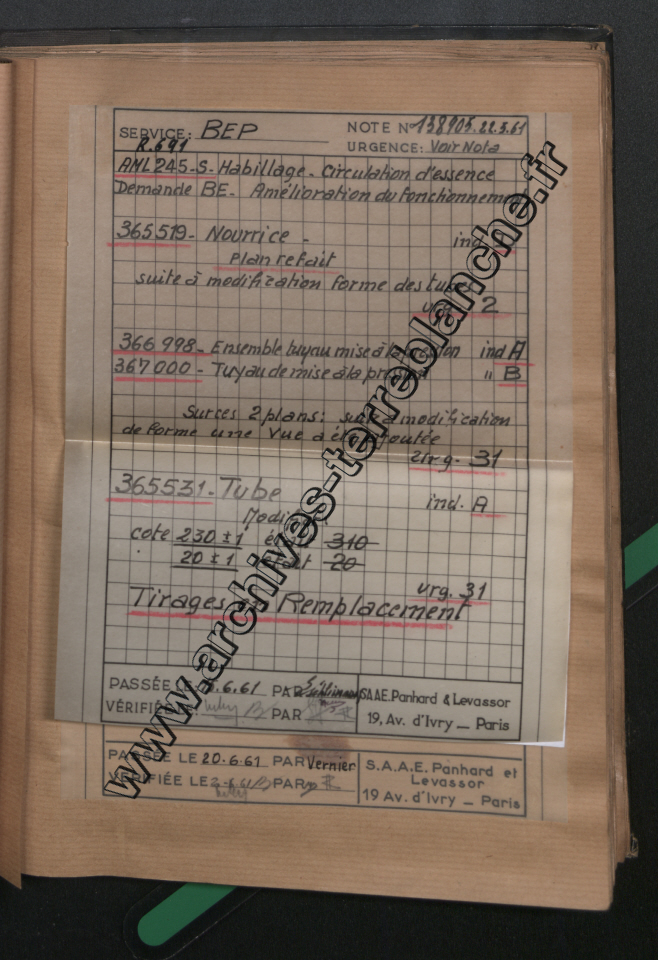 SERVICE: BEP
NOTE N° 138905. 22.5.61
R.691
URGENCE: Voir Nota
AML 245-S- Habillage - Circulation d'essence
Demande BE - Amélioration du fonctionnement
365519- Nourrice - ind
Plan refait
suite à modification forme des tubes
urg. 2
366998- Ensemble tuyau mise à la pression ind A
367000- Tuyau de mise à la " B
Sur ces 2 plans: suite à modification
de forme une vue a été ajoutée
urg. 31
365531- Tube
ind. A
cote 230 ±1 310
20 ±1 était 20
urg. 31
Tirages Remplacement
PASSÉE LE .6.61 PAR
S.A.A.E. Panhard & Levassor
VÉRIFIÉE PAR
19, Av. d'Ivry _ Paris
PASSÉE LE 20.6.61 PAR Vernier
S.A.A.E. Panhard et
Levassor
VÉRIFIÉE LE PAR
19 Av. d'Ivry _ Paris
www.archives-terreblanche.fr